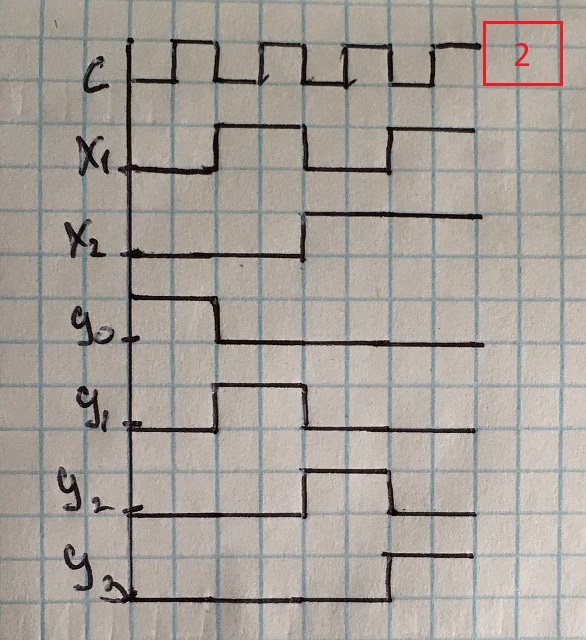 C
2
X1
X2
y0
y1
y2
y3